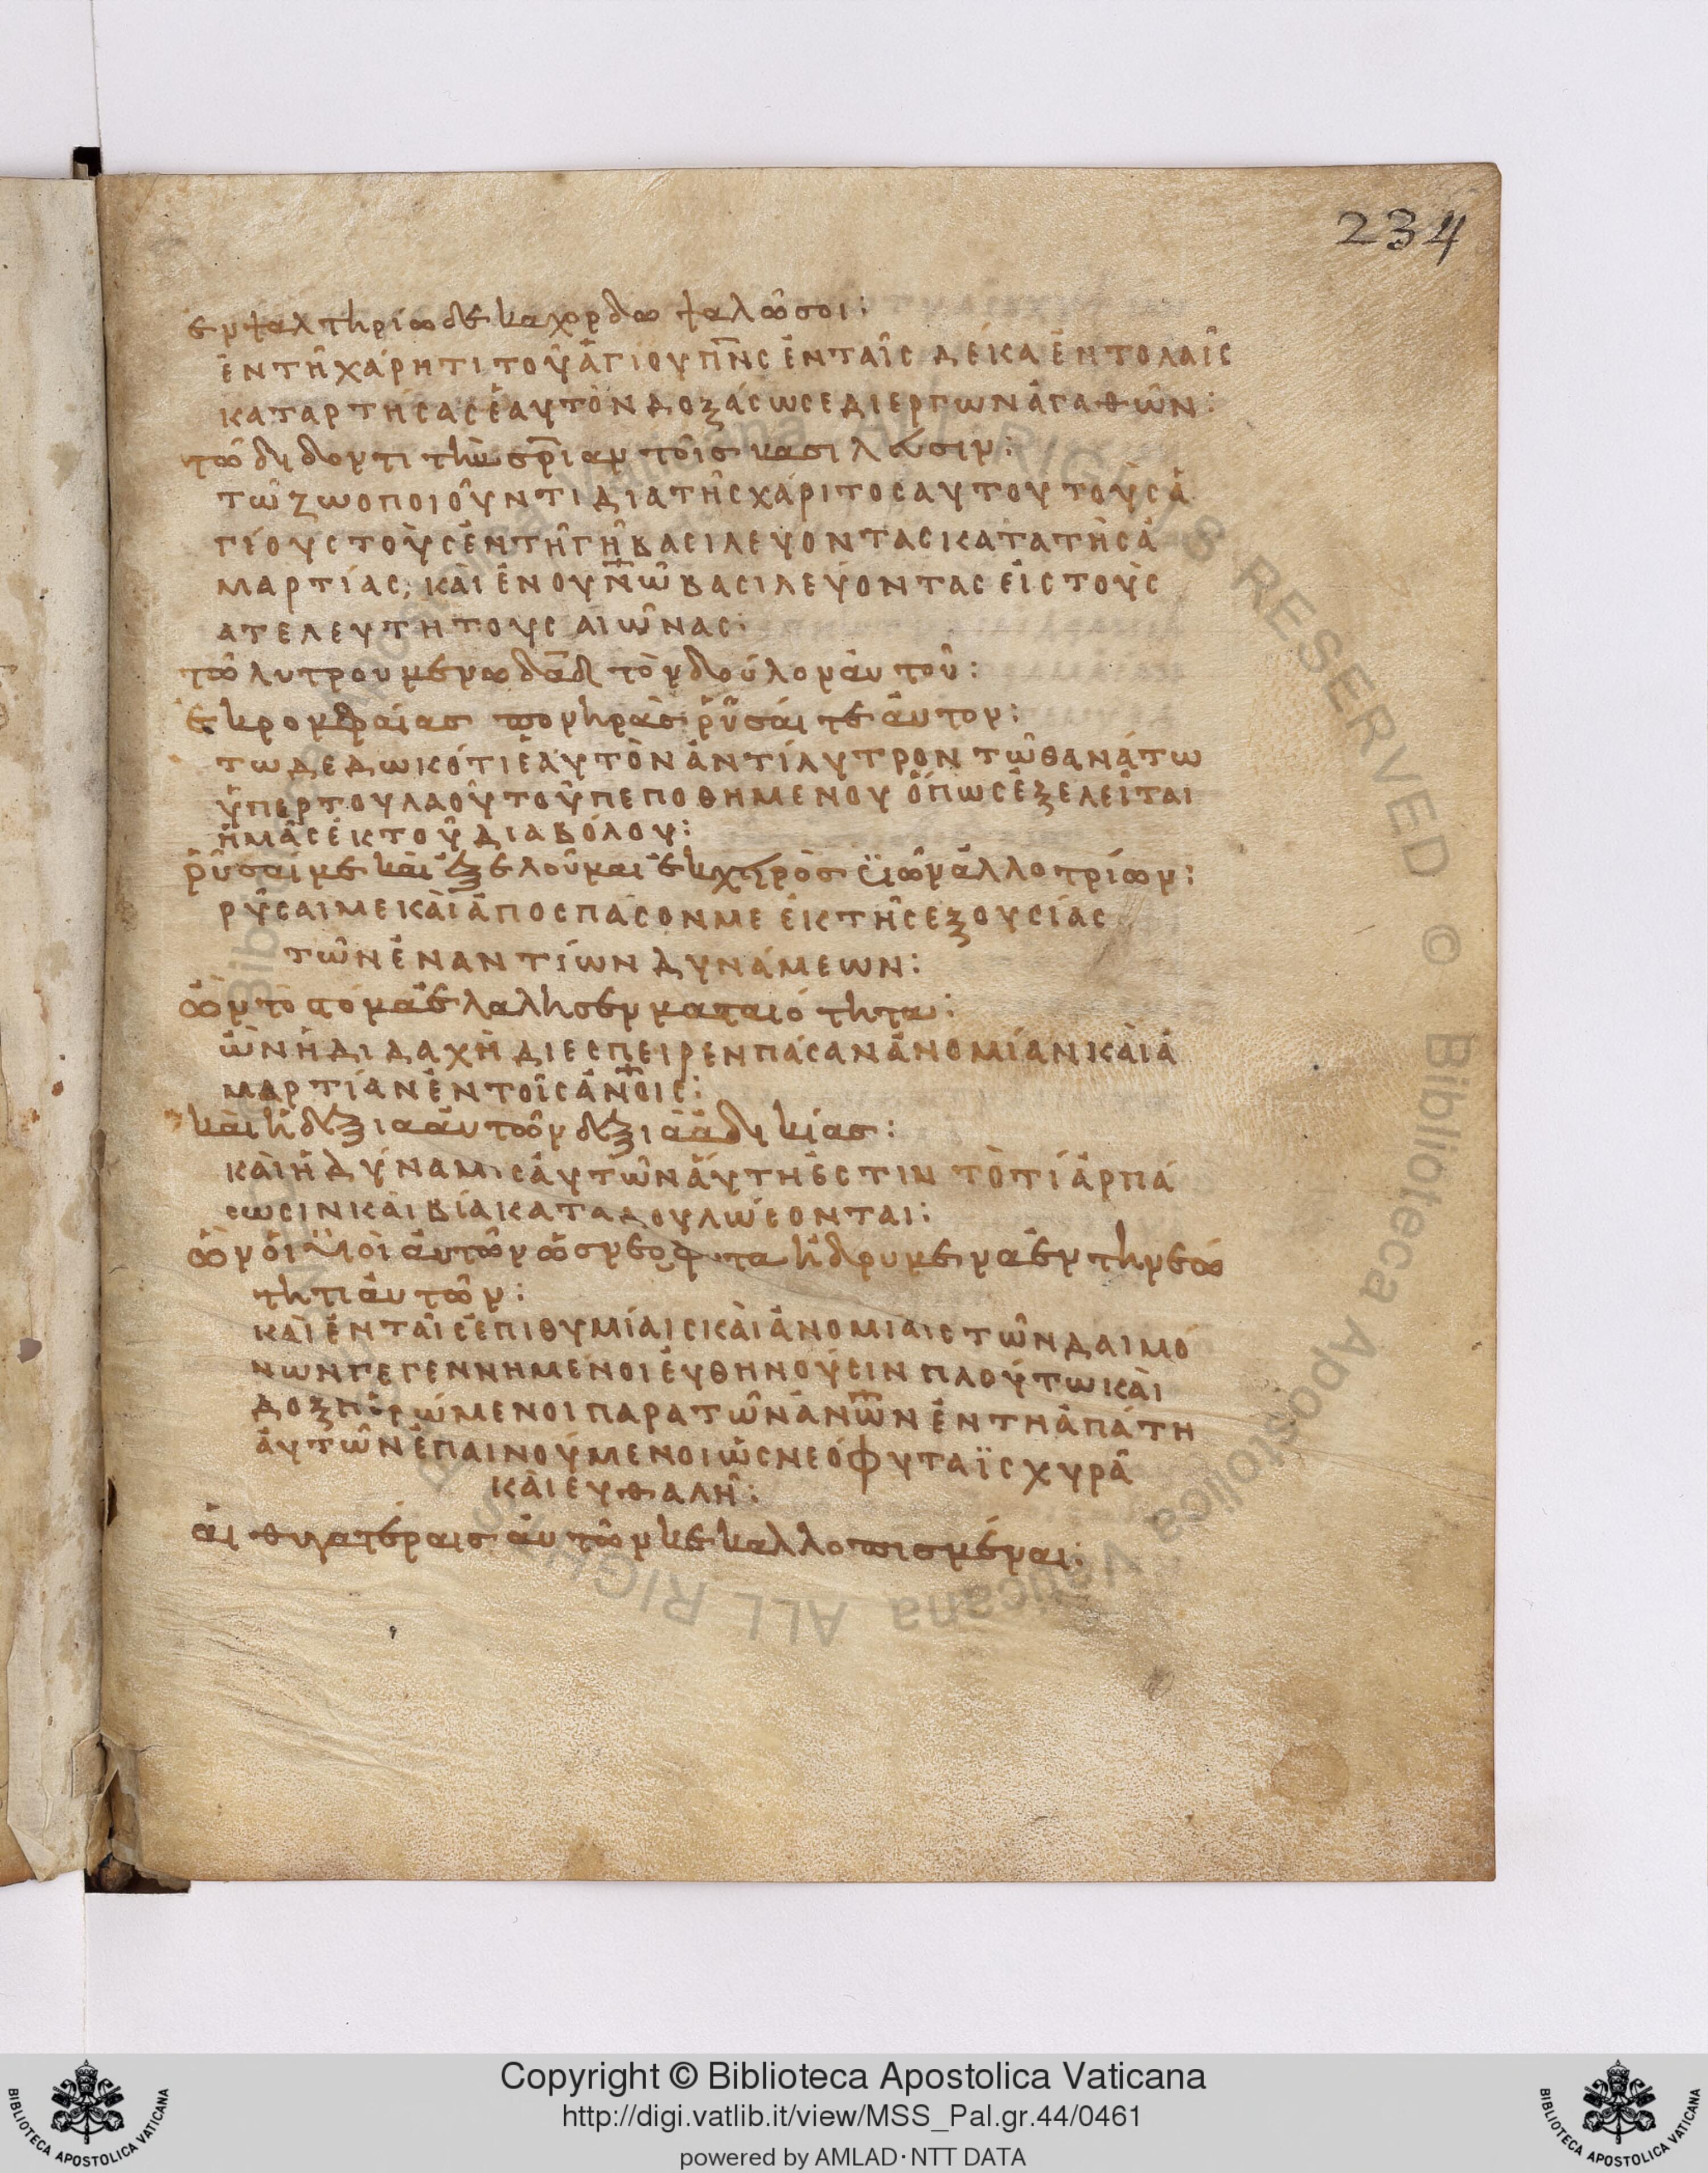 234
ἐν ψαλτηρίω δεκαχορδω ψαλῶ σοι:
ἐν τῆ χάρητι τοῦ ἁγίου πν̅ς ἐν ταῖς δέκα ἐντολαῖς
καταρτήσας ἑαυτὸν δοξάσω σε δι εργων ἀγαθῶν:
τῶ διδοντι τὴν σρ̅ιαν τοῖς βασιλεῦσιν:
τῶ ζωοποιοῦντι διατῆς χάριτος αυτου τοὺς ἁ
γίους τοὺς ἐν τῆ γῆ βασιλεύοντας κατα τῆς ἁ
μαρτίας; καὶ ἐν ουν̅ῶ βασιλεύοντας εἰς τοὺς
ατελευτητους αἰῶνας:
τῶ λυτρουμενω δα̅δ τὸν δούλον ἀυτοῦ:
ἐκ ρομφαίας πονηρὰς ῥῦσάι τε ἀυτον:
τω δεδωκότι ἑαυτὸν ἀντίλυτρον τῶ θανάτω
ὑπερ του λαοῦ τοῦ πεποθημενου ὅπως ἐξελεῖται
ἡμᾶς ἐκ τοῦ διαβόλου:
ῥῦσαί με καὶ ἐξελοῦ μαι ἐκ χηρὸς ϋιῶν ἀλλοτρίων:
ρῦσαι με καὶ ἀποσπάσον με ἐκ τῆς εξουσίας
τῶν ἐναντίων δυνάμεων:
ὧν τὸ στόμα ἐλαλησεν ματαιότητα:
ὧν ἡ διδαχὴ διεσπειρεν πάσαν ἀνομίαν καὶ ἁ
μαρτίαν ἐν τοῖς ἀν̅οις:
καὶ ἡ δεξια ἀυτῶν δεξιὰ ἀδικίας:
καὶ ἡ δύναμις ἀυτῶν ἁύτη ἐστιν τὸ τί ἁρπά
σωσιν κὰι βία καταδουλώσονται:
ὧν ὁι ϋιοὶ ἀυτῶν ὡς νεοφυτα ἡδρυμενα ἐν τη νεό
τητι ἀυτῶν:
κὰι ἐν ταῖς ἐπιθυμίαις κὰι ἀνομιαις τῶν δαιμό
νων γεγεννημενοι ἐυθηνούσιν πλούτω κὰι
δοξη ὁρώμενοι παρα τῶν ἀν̅ῶν ἐν τη ἀπάτη
ἀυτῶν ἐπαινούμενοι ὡς νεόφυτα ϊσχυρᾶ
κὰι ἐυθαλῆ:
ἁι θυγατέραις ἀυτῶν κεκαλλοπισμέναι:
Copyright © Biblioteca Apostolica Vaticana
http://digi.vatlib.it/view/MSS_Pal.gr.44/0461
powered by AMLAD·NTT DATA
BIBLIOTECA APOSTOLICA VATICANA
BIBLIOTECA APOSTOLICA VATICANA